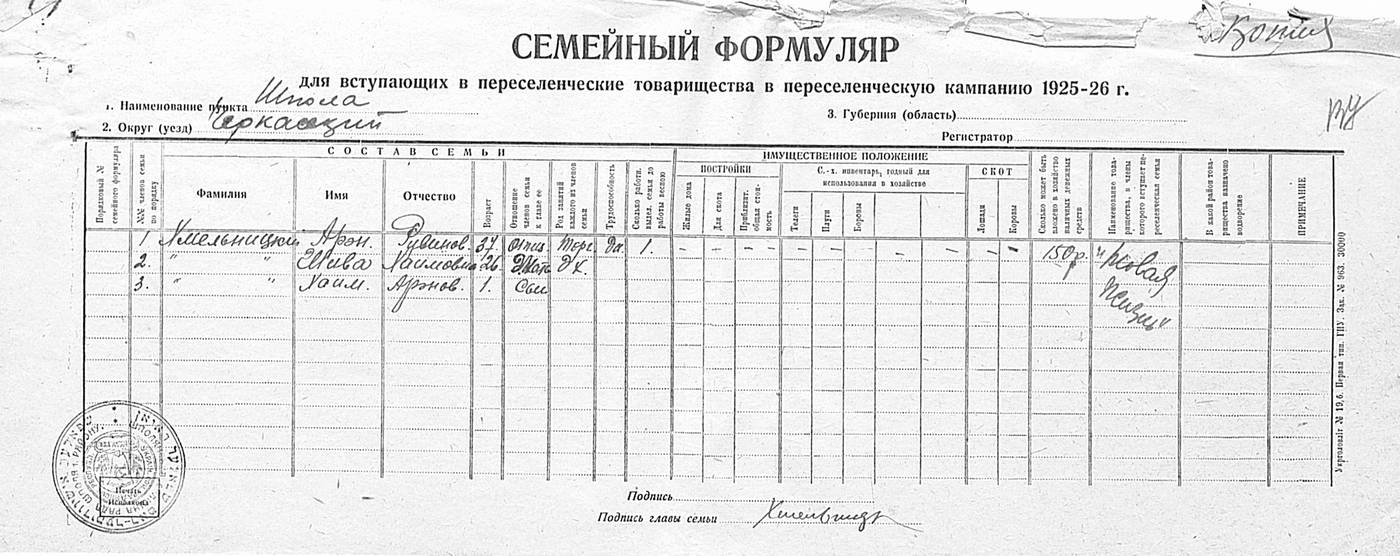 СЕМЕЙНЫЙ ФОРМУЛЯР
для вступающих в переселенческие товарищества в переселенческую кампанию 1925-26 г.
1. Наименование пункта Шпола
3. Губерния (область)
2. Округ (уезд) Черкасский
Регистратор
СОСТАВ СЕМЬИ
ИМУЩЕСТВЕННОЕ ПОЛОЖЕНИЕ
ПОСТРОЙКИ
С.-х. инвентарь, годный для использования в хозяйстве
СКОТ
Порядковый № семейного формуляра
№№ членов семьи по порядку
Фамилия
Имя
Отчество
Возраст
Отношение членов семьи к главе ее
Род занятий каждого из членов семьи
Трудоспособность
Сколько работн. выдел. семья до работы весною
Жилые дома
Для скота
Приблизит. общая стоимость
Телеги
Плуги
Бороны
Лошади
Коровы
Сколько может быть вложено в хозяйство наличных денежных средств
Наименование товарищества, в члены которого вступает переселенческая семья
В какой район товарищества назначено водворение
ПРИМЕЧАНИЕ
1 Хмельницкий Арон. Рувинов. 37 Торг. Да. 1. – – – – – – – – – – 150 р. "Новая
2. " " Хаимовна 26 Жена Д х. Жизнь"
3. " " Хаим. Аронов. 1. Сын
Укрголовліт № 19,6. Первая тип. ГИУ. Зак. № 963. 30000
Печать Исполкома
Подпись
Подпись главы семьи